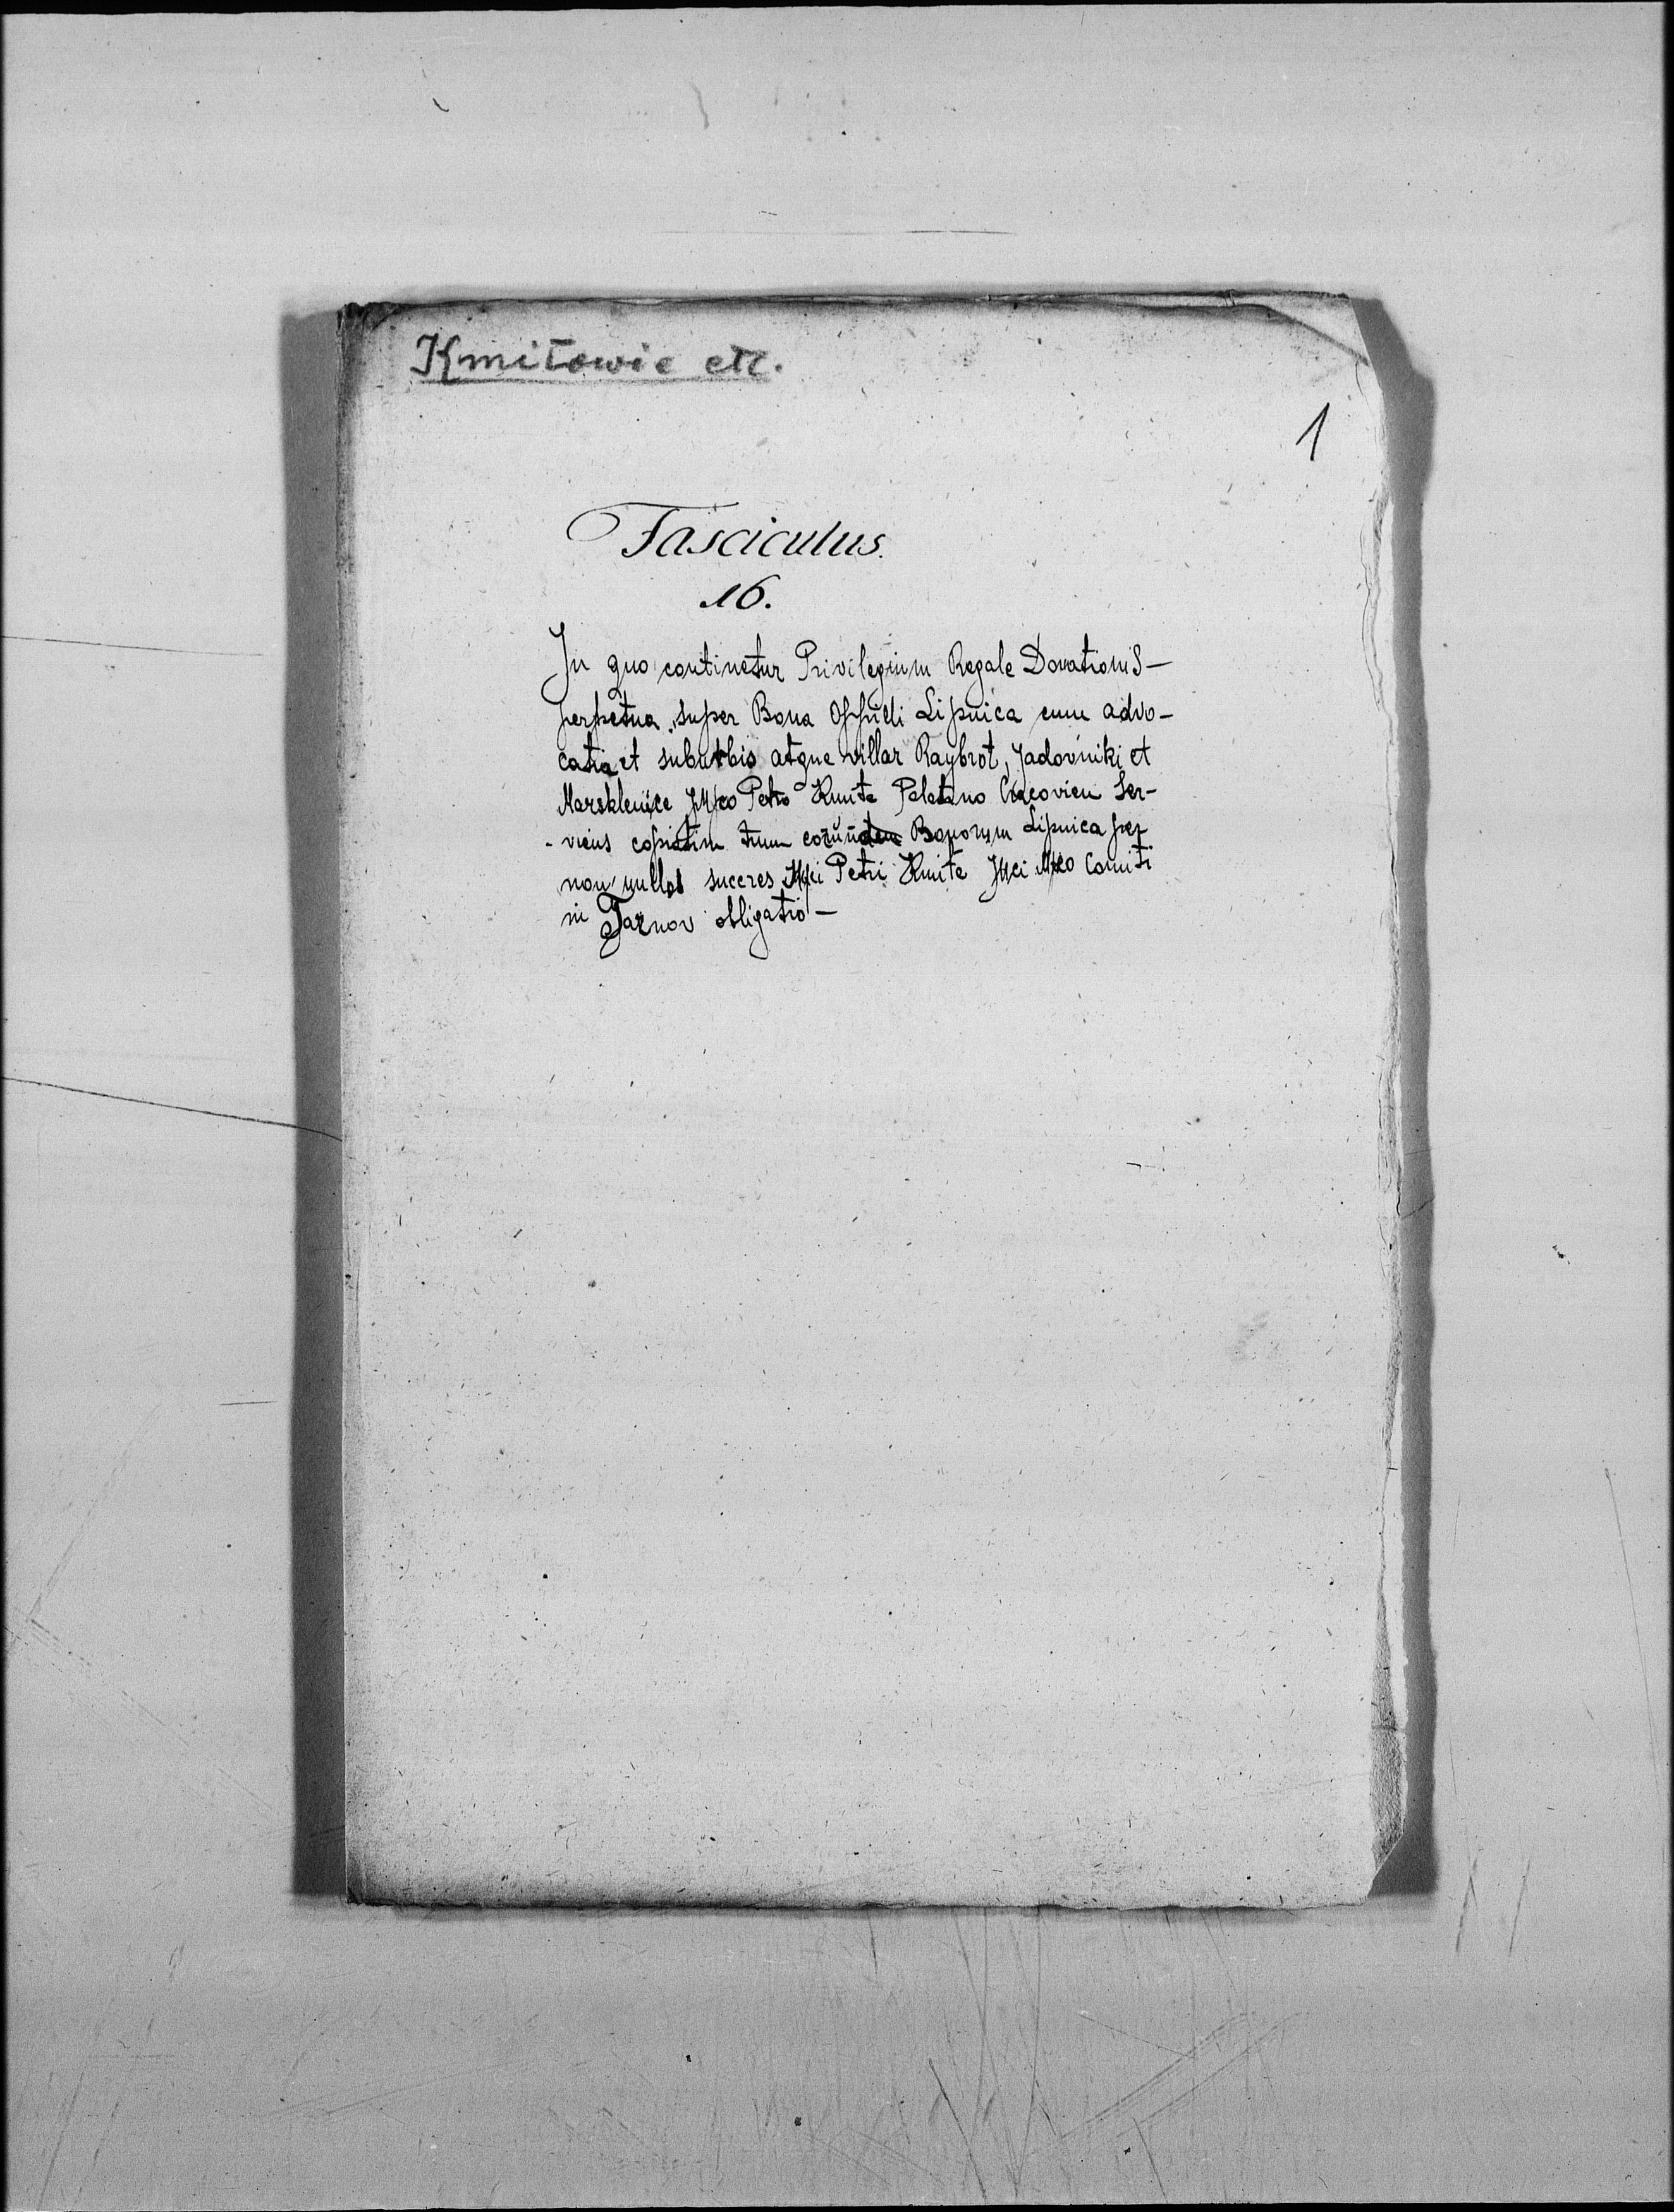 Kmitowie etc.
1
Fasciculus.
16.
In quo continetur Privilegium Regale Donationis—
perpetua super Bona Oppidi Lipnica cum advo-
catia et suburbio atque villar Raybrot, Jadovniki et
Petro Kmita Palatino Cracovien Ser-
-viens copiatim tum eorundem Bonorum Lipnica per
non nullos succes Petri Kmite Comiti
in Tarnov obligatio—